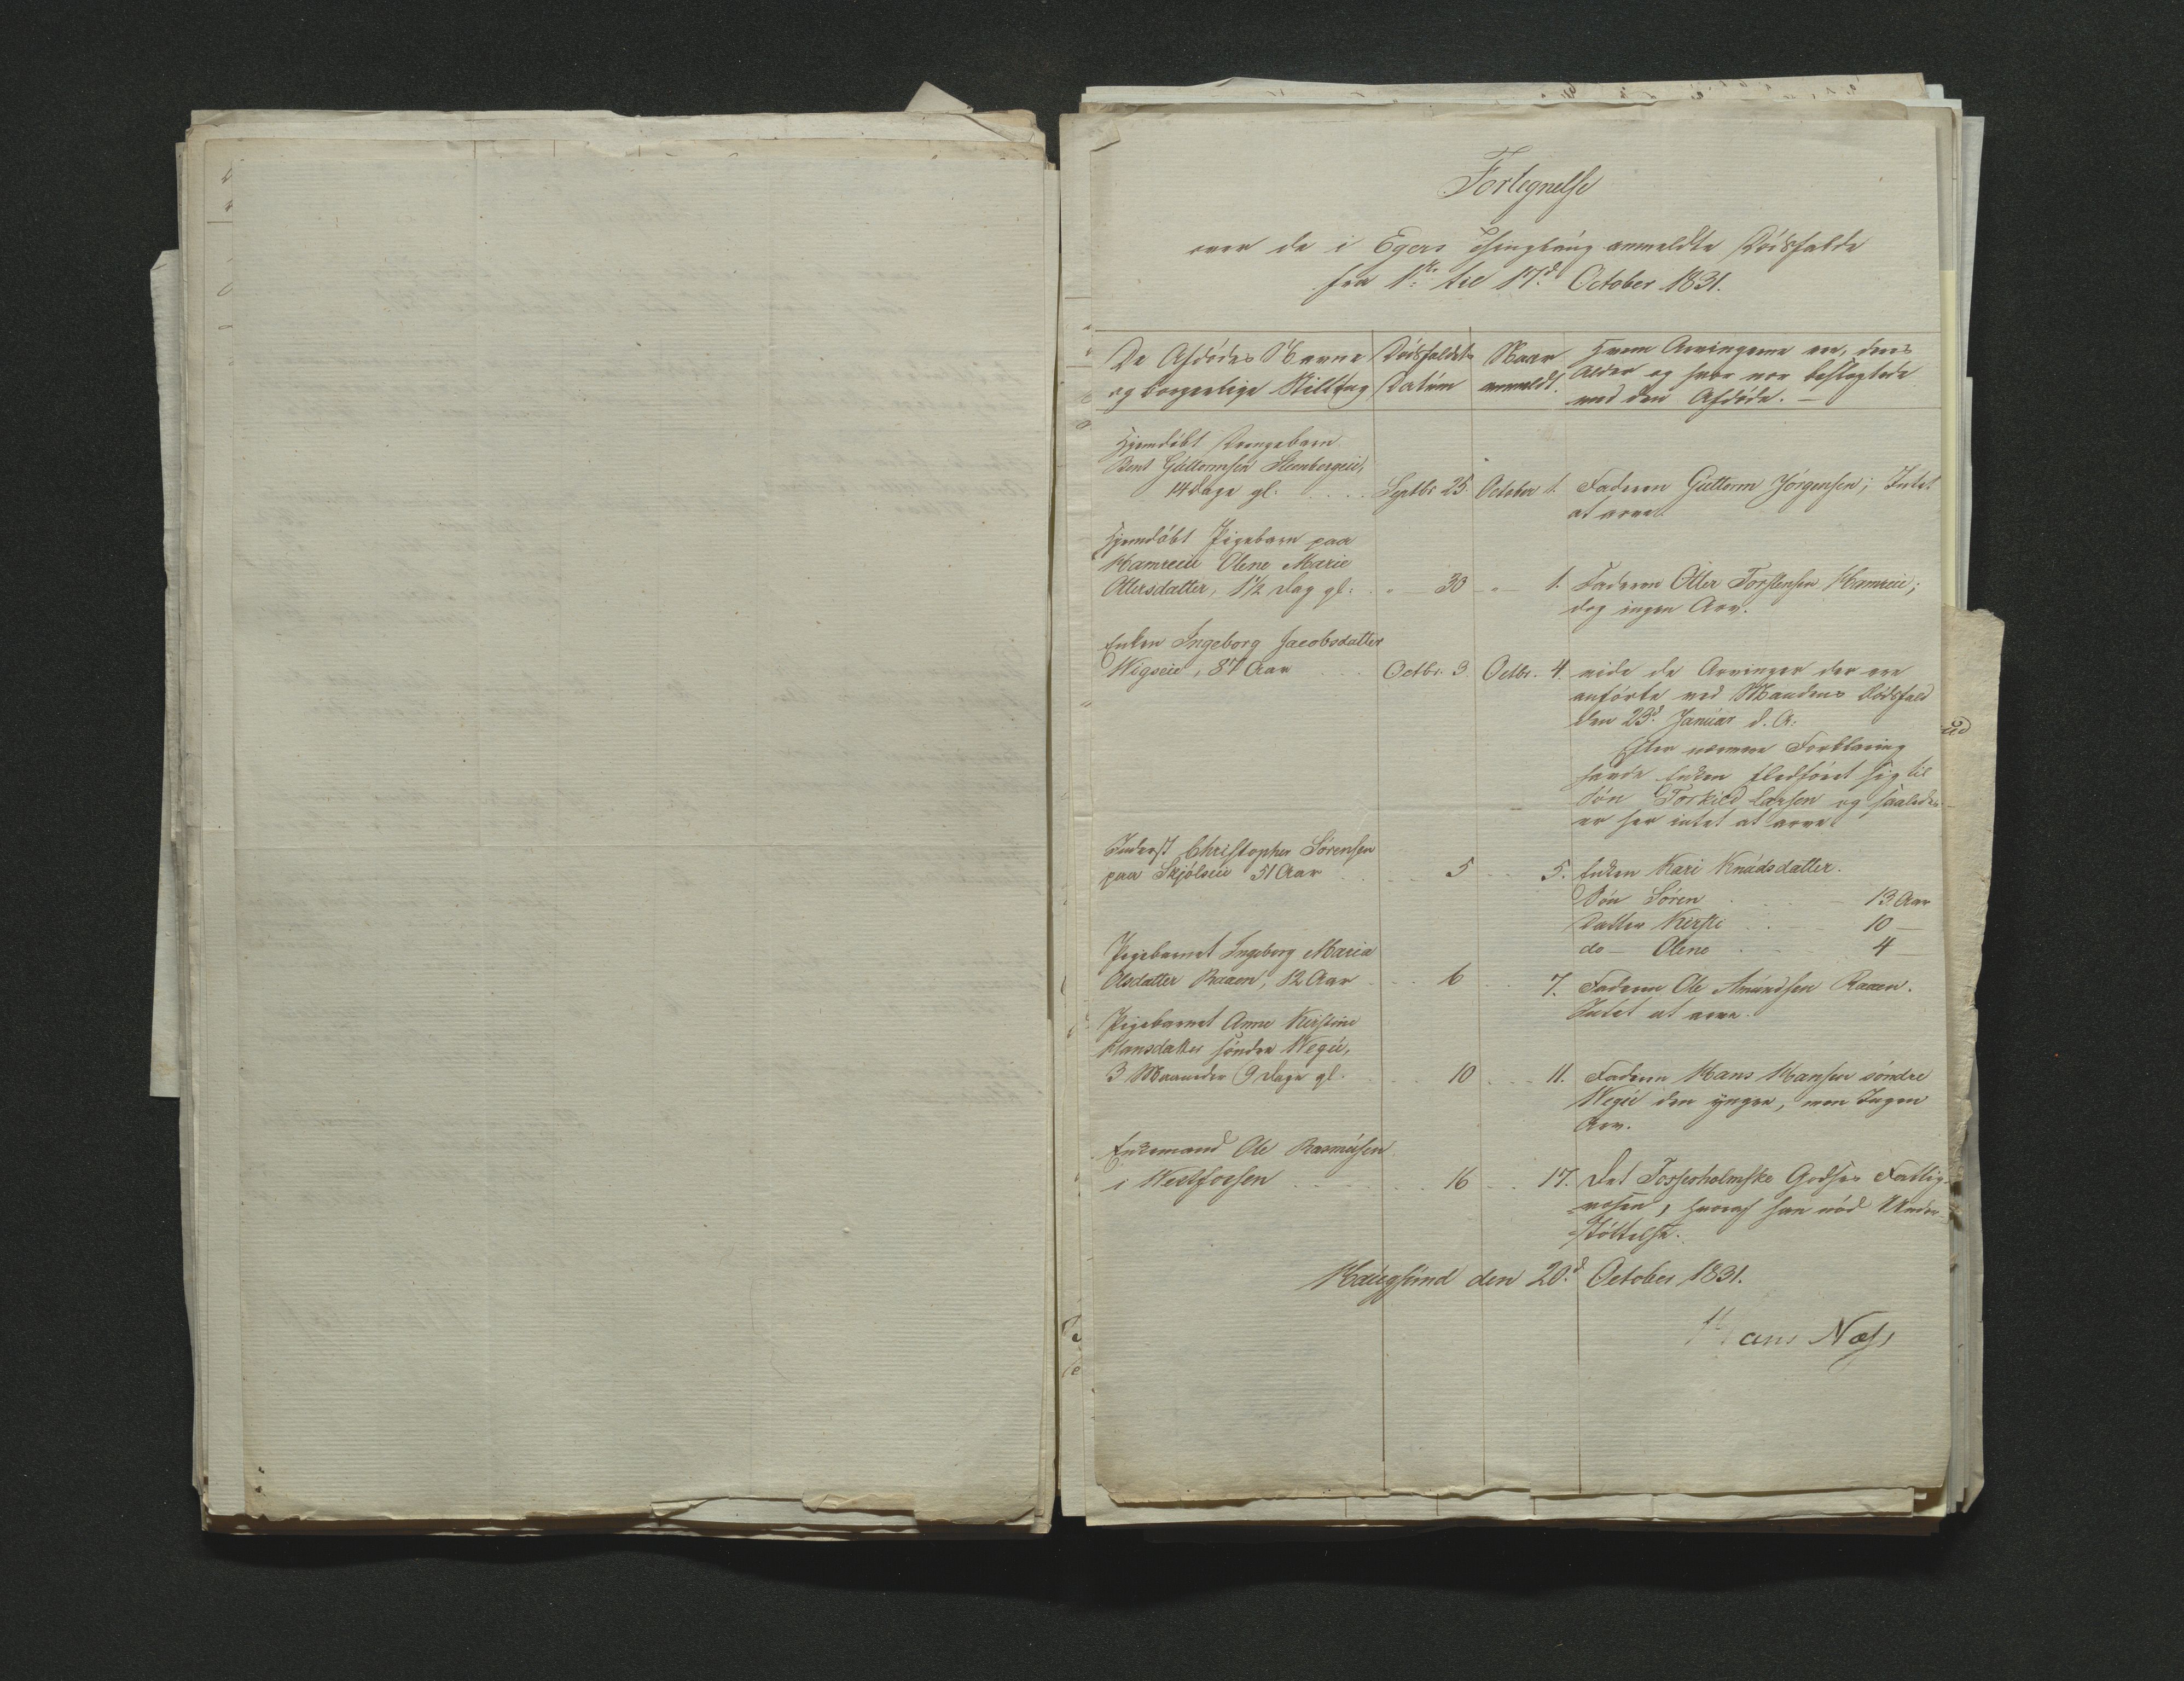 Fortegnelse
over de i Egers Thinglaug anmeldte Dödsfalde
fra 1ste til 17d October 1831.
De Afdödes Navne
og borgerlige Stilling
Dödsfaldets
Datum
Naar
anmeldt.
Hvem Arvingerne ere, deres
Alder og hvor nær beslægtede
med den Afdöde. —
Hjemdöbt Drengebarn
Bent Guttormsen Steenbergeie,
14 dage gl. Septbr 25. October 1. Faderen Guttorm Jörgensen; Intet
at arve.
Hjemdöbt Pigebarn paa
Hamreeie Olene Marie
Ollersdatter, 1 1/2 Dag gl. " — 30 — " — 1. Faderen Oller Torstensen Hamreie;
dog ingen Arv.
Enken Ingeborg Jacobsdatter
Wigseie, 87 Aar Octbr. 3. Octbr. 4. vide de Arvinger der ere
anförte ved Mandens Dödsfald
den 23d Januar d. A.
Efter nærmere Forklaring
havde Enken fledfört sig til
Sön Torkild Larsen og saaledes
er her intet at arve.
Inderst Christopher Sörensen
paa Skjölseie 51 Aar 5 5. Enken Kari Knudsdatter.
Sön Sören — 13 Aar
Datter Kirsti — 10 —
do — Olene 4 —
Pigebarnet Ingeborg Maria
Olsdatter Raaen, 12 Aar 6 7. Faderen Ole Amundsen Raaen.
Intet at arve.
Pigebarnet Anne Kirstine
Hansdatter söndre Wegeie,
3 Maaneder 9 Dage gl. 10 11. Faderen Hans Hansen söndre
Wegeie den yngre, men Ingen
Arv.
Enkemand Ole Rasmusen
i Westfossen 16 17. Det Fossesholmske Godses Fattig-
væsen, hvoraf han nöd Under-
stöttelse.
Haugsund den 20d October 1831.
Hans Næss